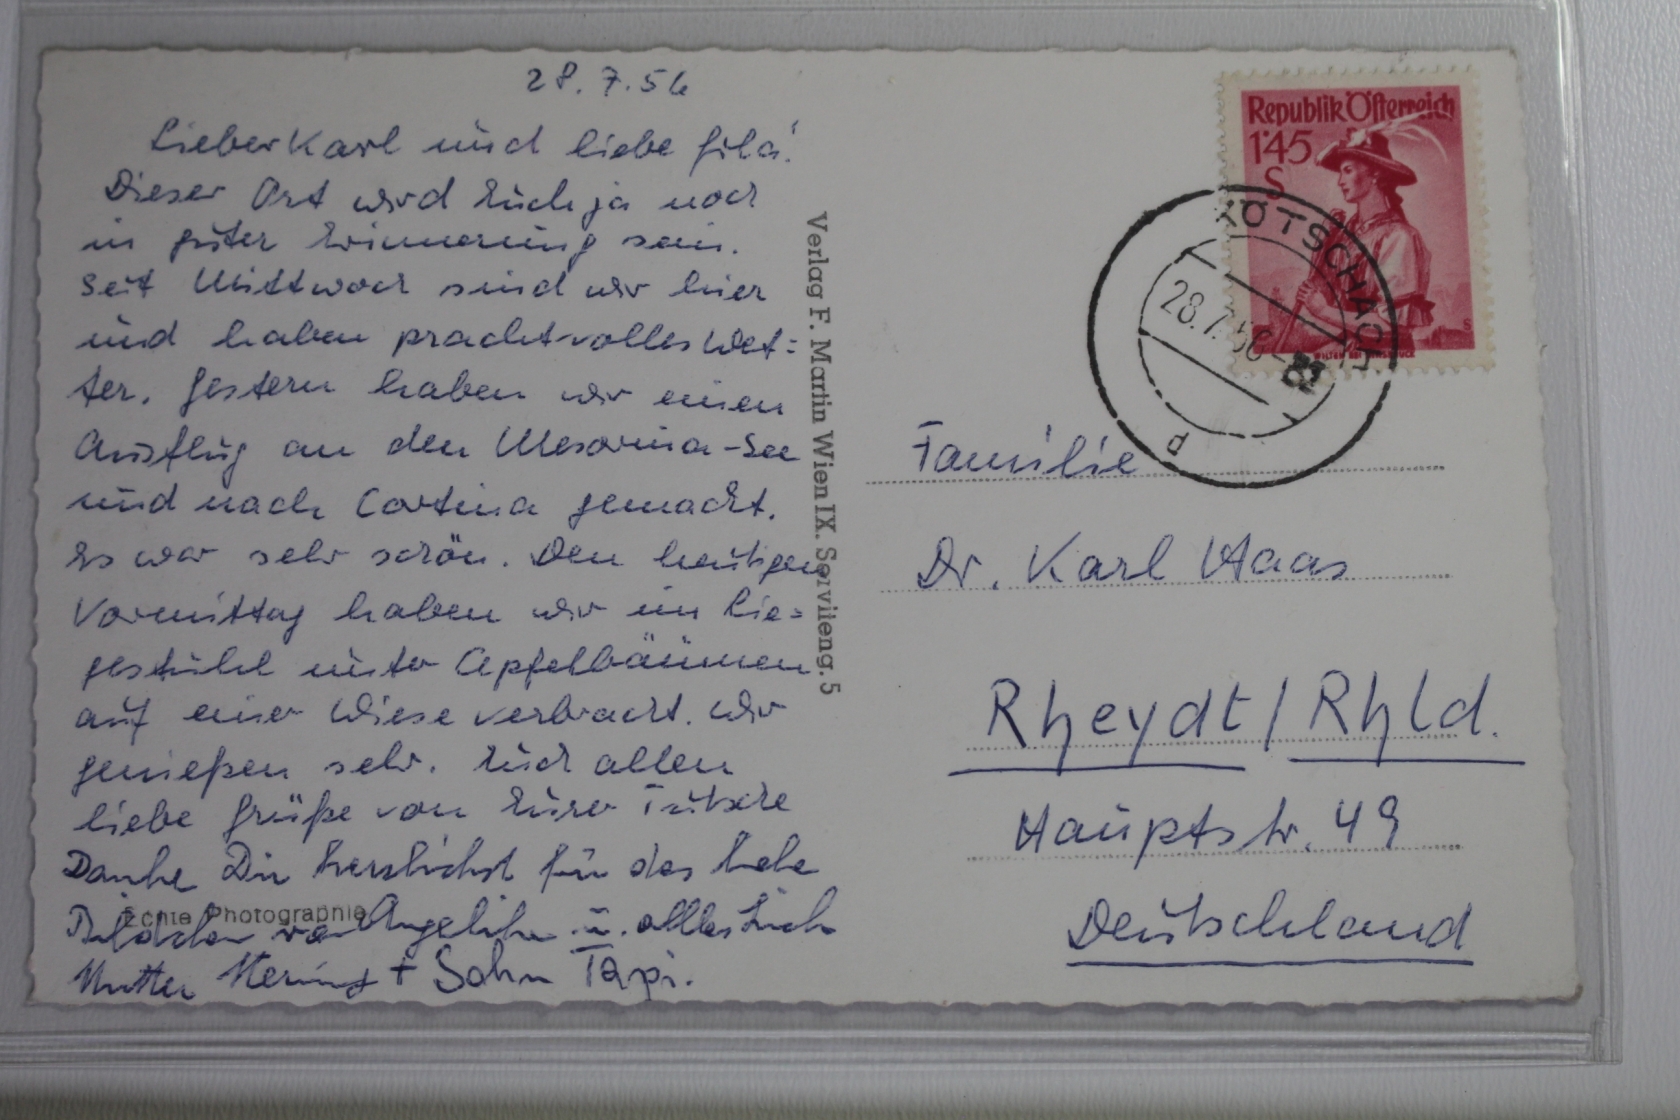 28.7.56
Lieber Karl und liebe Gila!
Dieser Ort wird Euch ja noch
in guter Erinnerung sein.
Seit Mittwoch sind wir hier
und haben prachtvolles Wet=
ter. Gestern haben wir einen
Ausflug an den Mesorina-See
und nach Cortina gemacht.
Es war sehr schön. Den heutigen
Vormittag haben wir im Lie=
gestuhl unter Apfelbäumen
auf einer Wiese verbracht. Wir
genießen sehr. Euch allen
liebe Grüße von Eurer
Danke Dir herzlichst für das liebe
Bildchen von Angelika u. alles Liebe
Mutter + Sohn
Echte Photographie
Verlag F. Martin Wien IX. Servieng. 5
Republik Österreich
1'45
S
WILTEN BEI INNSBRUCK
KÖTSCHACH
28.7.56-8
d
Familie
Dr. Karl Haas
Rheydt/Rhld.
Hauptstr. 49
Deutschland